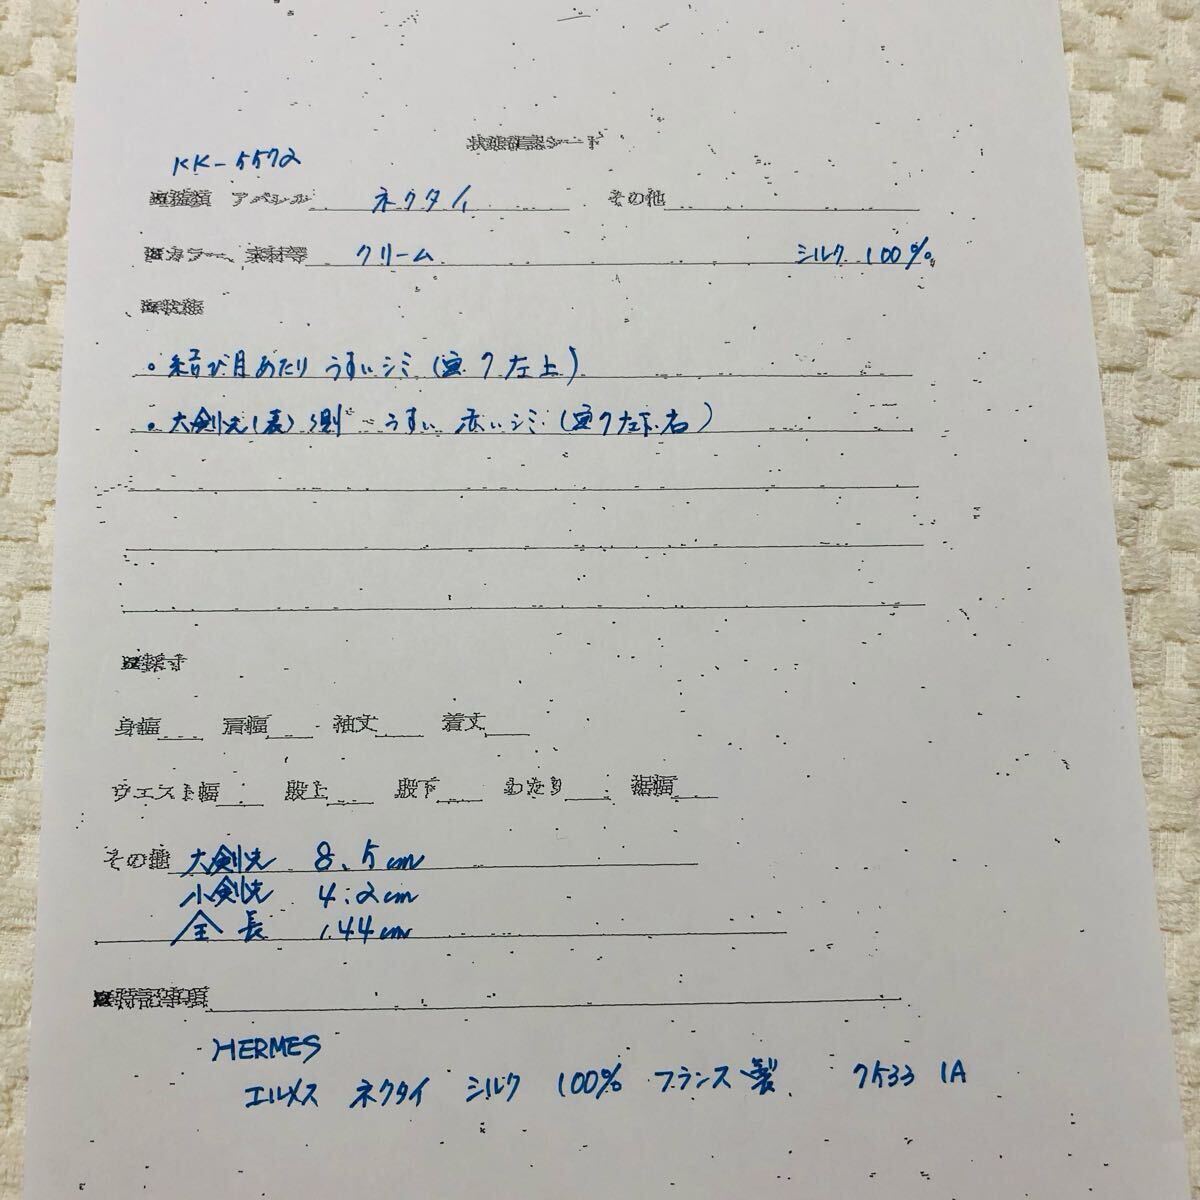 状態確認シート
KK-5572
■種類 アパレル ネクタイ その他
■カラー、素材等 クリーム シルク 100%
■状態
・結び目あたり うすいシミ (写7左上)
・大剣先(表)側に うすい 赤いシミ (写7左下.右)
■採寸
身幅 肩幅 袖丈 着丈
ウエスト幅 股上 股下 わたり 裾幅
その他 大剣先 8.5cm
小剣先 4.2cm
全長 144cm
■特記事項
HERMES
エルメス ネクタイ シルク 100% フランス製 7533 IA